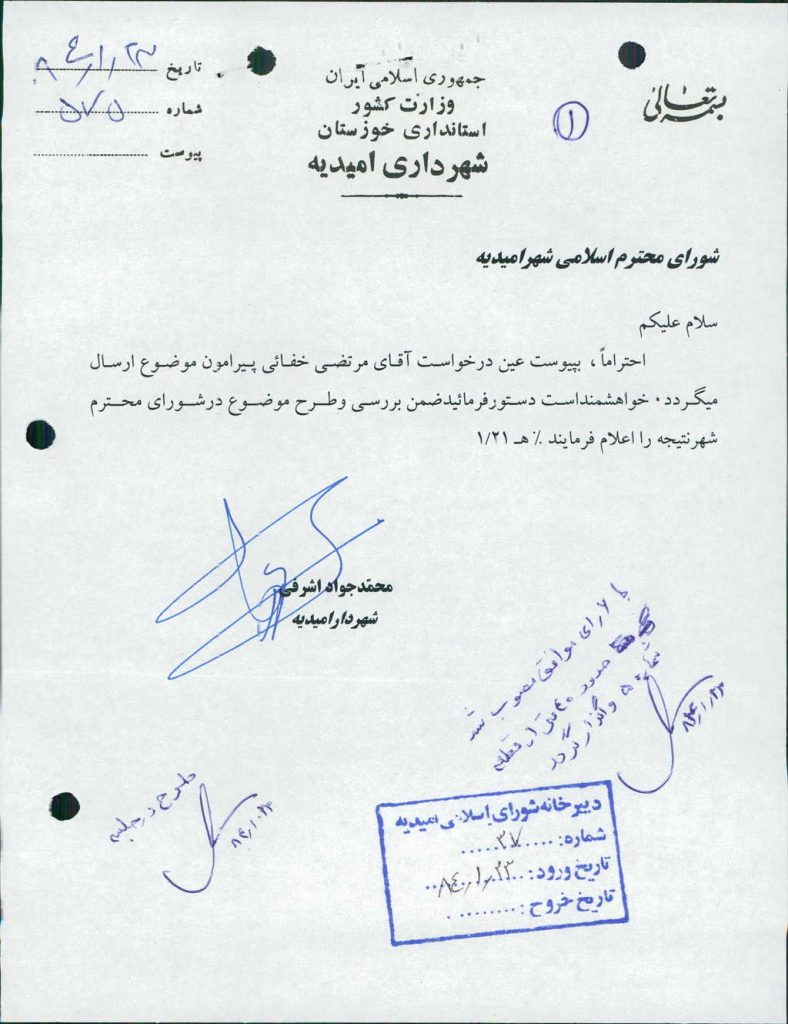 بسمه تعالی
جمهوری اسلامی ایران
وزارت کشور
استانداری خوزستان
شهرداری امیدیه
تاریخ
شماره ۵۷۵
پیوست
۱
شورای محترم اسلامی شهرامیدیه
سلام علیکم
احتراماً، بپیوست عین درخواست آقای مرتضی خفائی پیرامون موضوع ارسال
میگردد۰ خواهشمنداست دستورفرمائیدضمن بررسی وطرح موضوع درشورای محترم
شهرنتیجه را اعلام فرمایند ٪ هـ ۱/۲۱
محمّدجواد اشرفی
شهردارامیدیه
رای موافق تصویب شد
واگذار گردد
طرح در جلسه
دبیرخانه شورای اسلامی امیدیه
شماره: ۳۷
تاریخ ورود: ۸۴/۱/۲۳
تاریخ خروج: